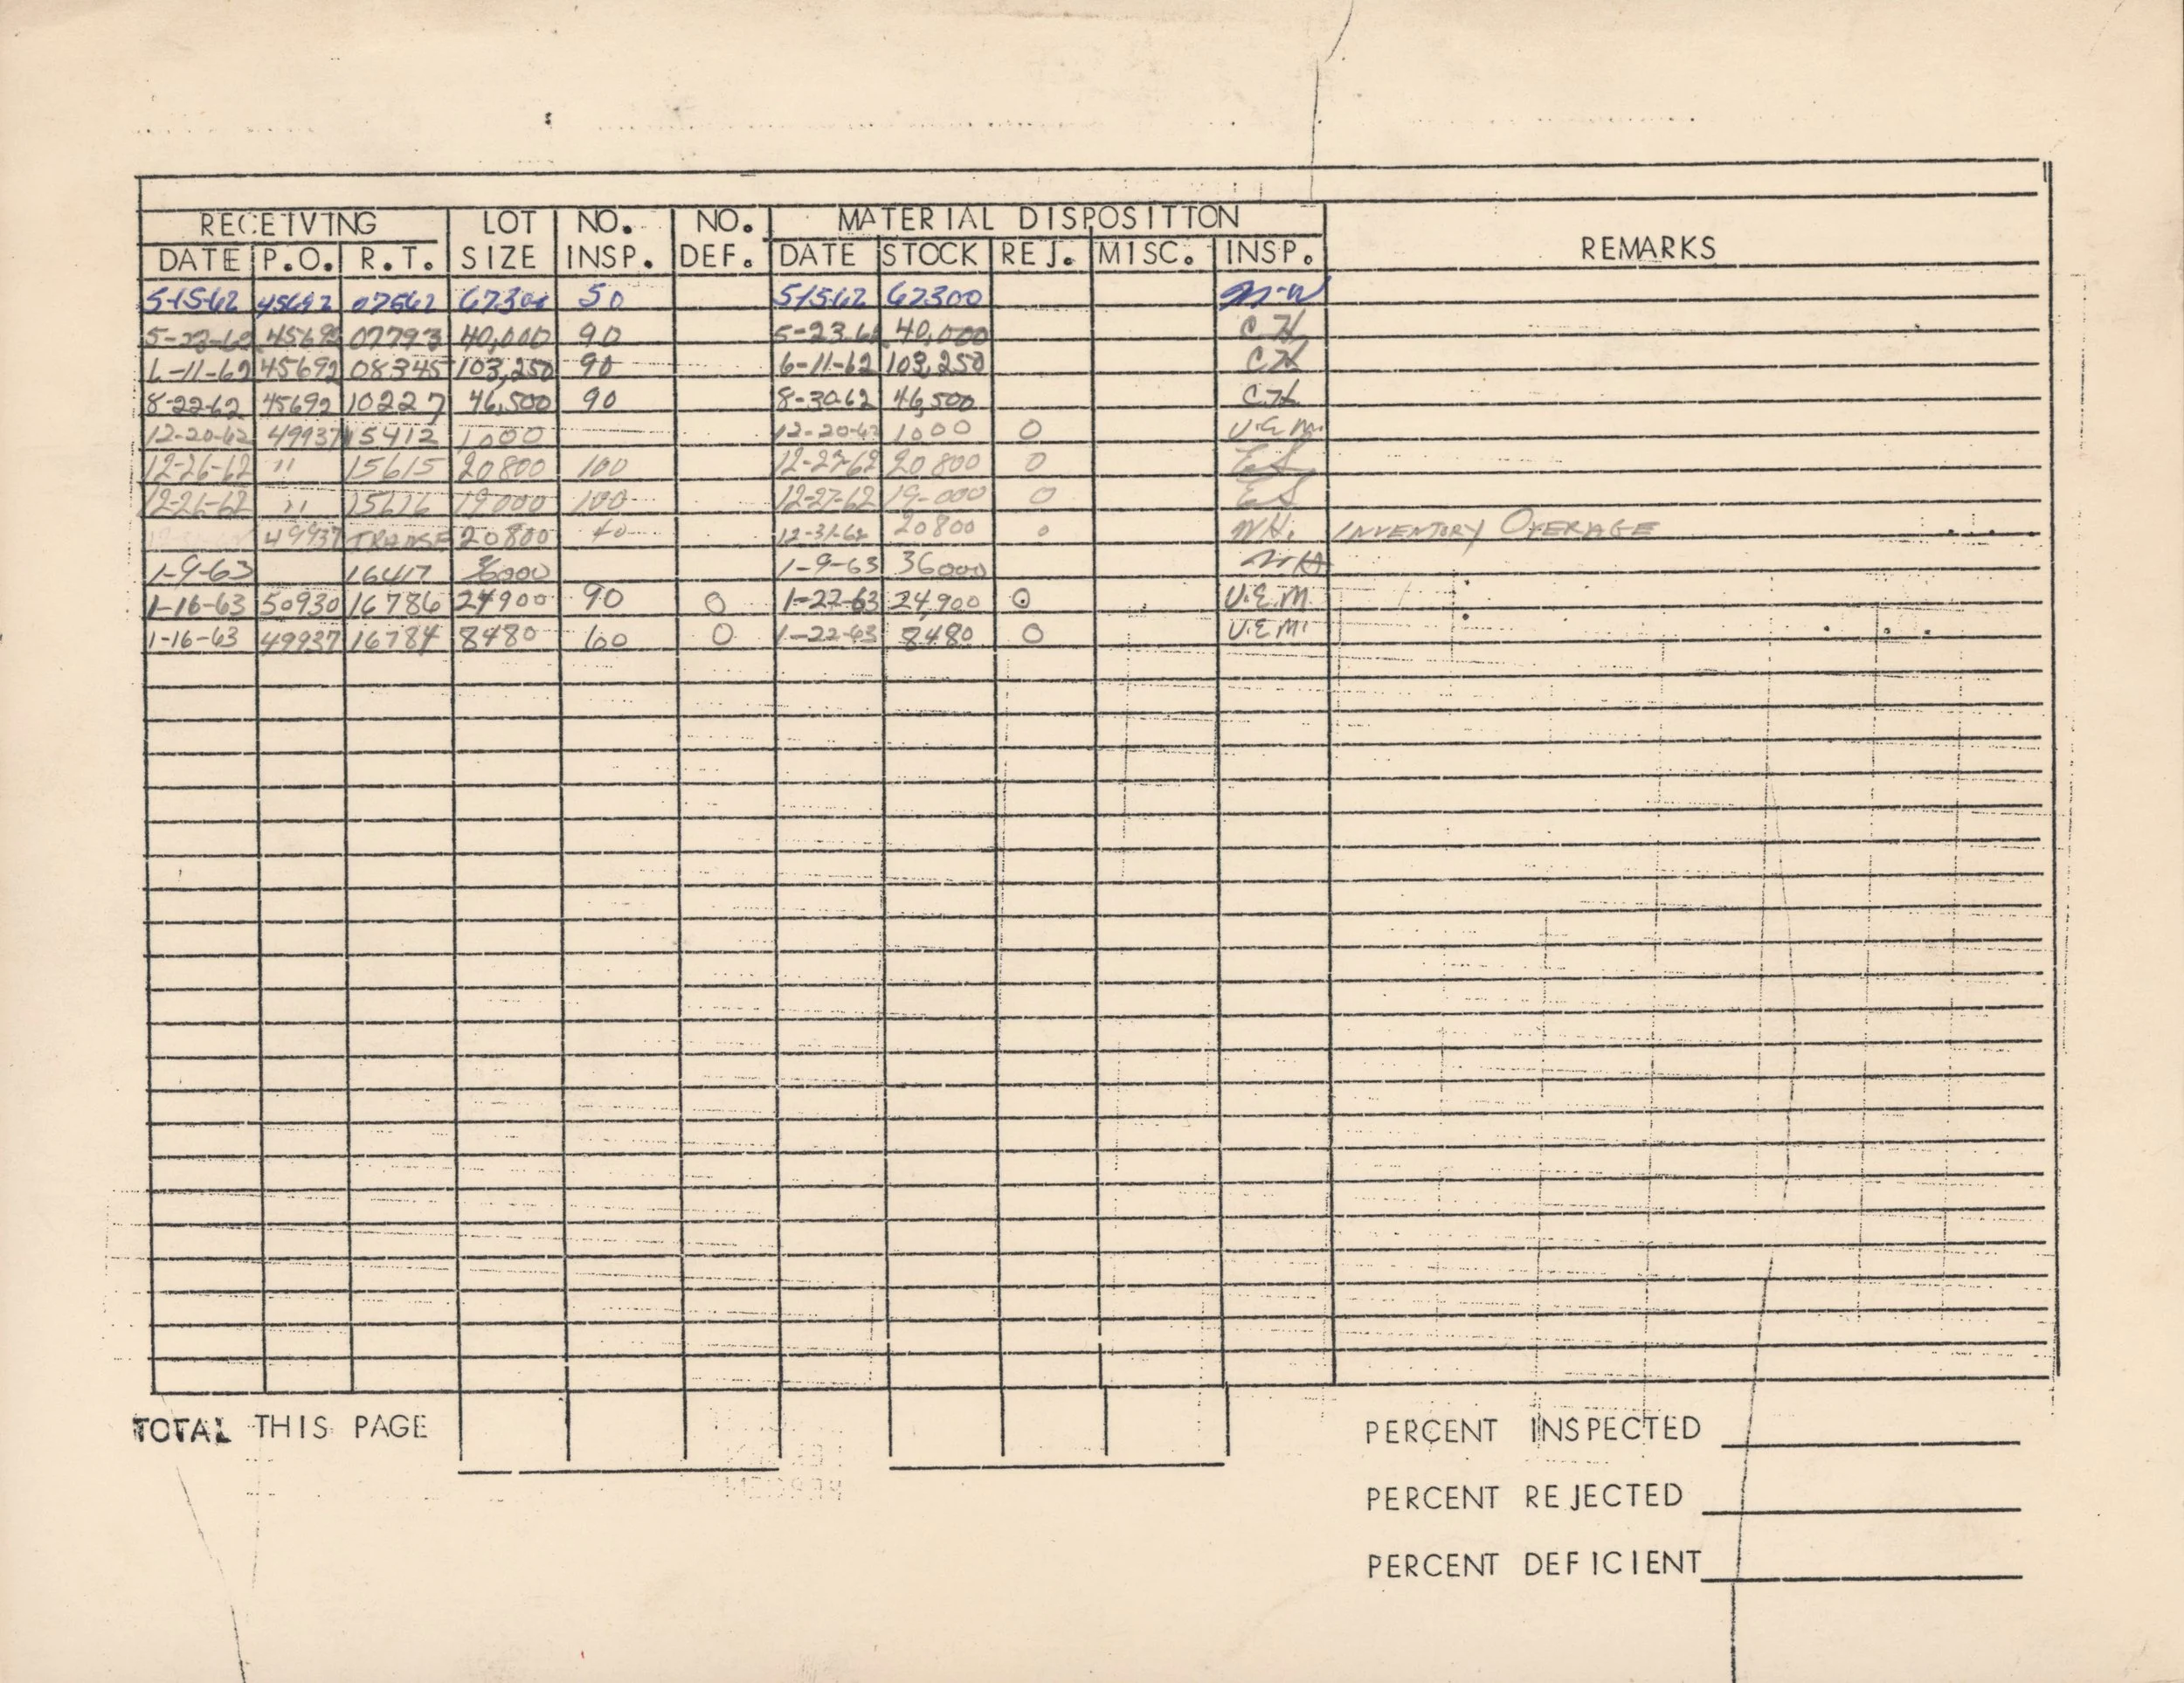 RECEIVING LOT NO. NO. MATERIAL DISPOSITION REMARKS
DATE P.O. R.T. SIZE INSP. DEF. DATE STOCK REJ. MISC. INSP.
5-15-62 45692 07562 50 5-15-62 62300
5-23-62 45692 07793 40,000 90 5-23-62 40,000 C.H.
6-11-62 45692 08345 103,250 90 6-11-62 103,250 C.H.
8-22-62 45692 10227 46,500 90 8-30-62 46,500 C.H.
12-20-62 49937 15412 1000 12-20-62 1000 0 V.E.M.
12-26-62 " 15615 20800 100 12-27-62 20800 0 ES
12-26-62 " 15616 19000 100 12-27-62 19-000 0 ES
49937 TRANSF 20800 40 12-31-62 20800 0 INVENTORY OVERAGE
1-9-63 16417 36000 1-9-63 36000
1-16-63 50930 16786 24900 90 0 1-22-63 24,900 0 V.E.M.
1-16-63 49937 16784 8480 60 0 1-22-63 8480 0 V.E.M.
TOTAL THIS PAGE
PERCENT INSPECTED
PERCENT REJECTED
PERCENT DEFICIENT